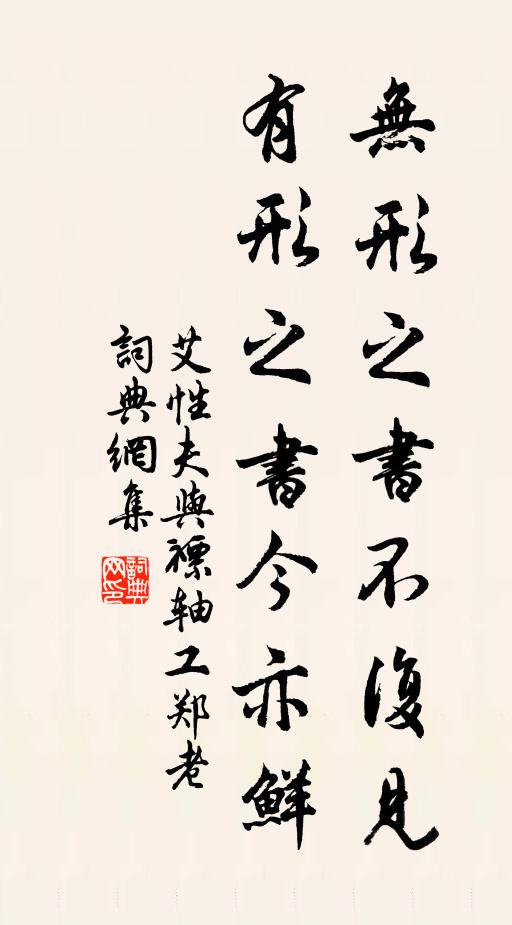 無形之書不復見
有形之書今亦鮮
艾性夫與褾轴工郑老
詞典網集
詞典网印